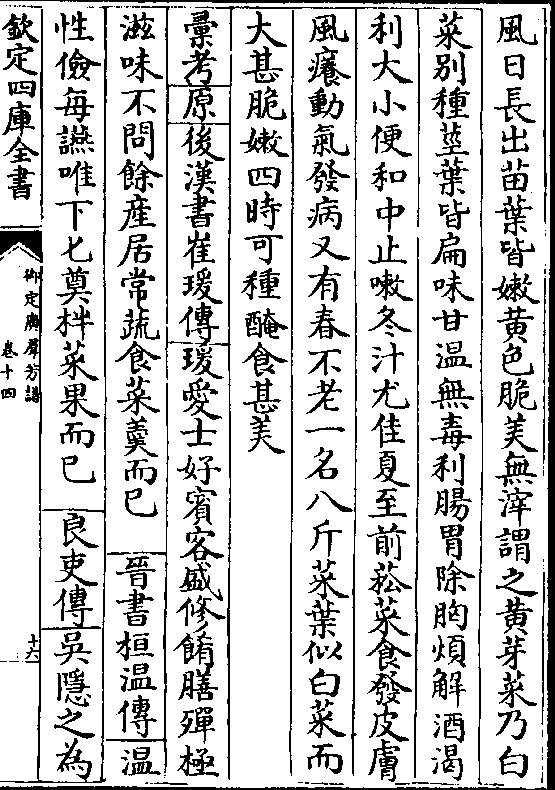 風日長出苗葉皆嫩黄色脆美無滓謂之黄芽菜乃白
菜别種莖葉皆扁味甘温無毒利腸胃除胸煩解酒渴
利大小便和中止嗽冬汁尤佳夏至前菘菜食發皮膚
風癢動氣發病又有春不老一名八斤菜葉似白菜而
大甚脆嫩四時可種醃食甚美
彚考原後漢書崔瑗傳瑗愛士好賓客盛修餚膳殫極
滋味不問餘産居常蔬食菜羮而已 晉書桓温傳温
性儉每讌唯下七奠柈菜果而已 良吏傳吳隱之為
欽定四庫全書
御定廣羣芳譜
卷十四
十六